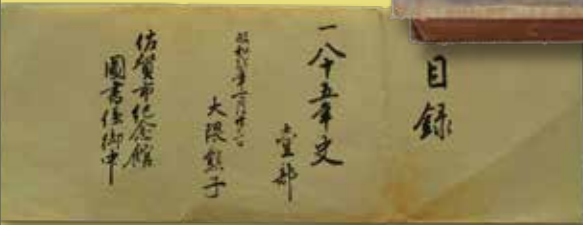 目録
一八十五年史
壹部
昭和弐年二月廿六日
大隈熊子
佐賀市紀念館
圖書係御中